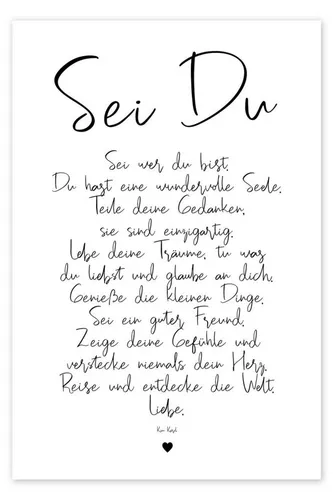 Sei Du
Sei wer du bist.
Du hast eine wundervolle Seele.
Teile deine Gedanken,
sie sind einzigartig.
Lebe deine Träume, tu was
du liebst und glaube an dich.
Genieße die kleinen Dinge.
Sei ein guter Freund.
Zeige deine Gefühle und
verstecke niemals dein Herz.
Reise und entdecke die Welt.
Liebe.